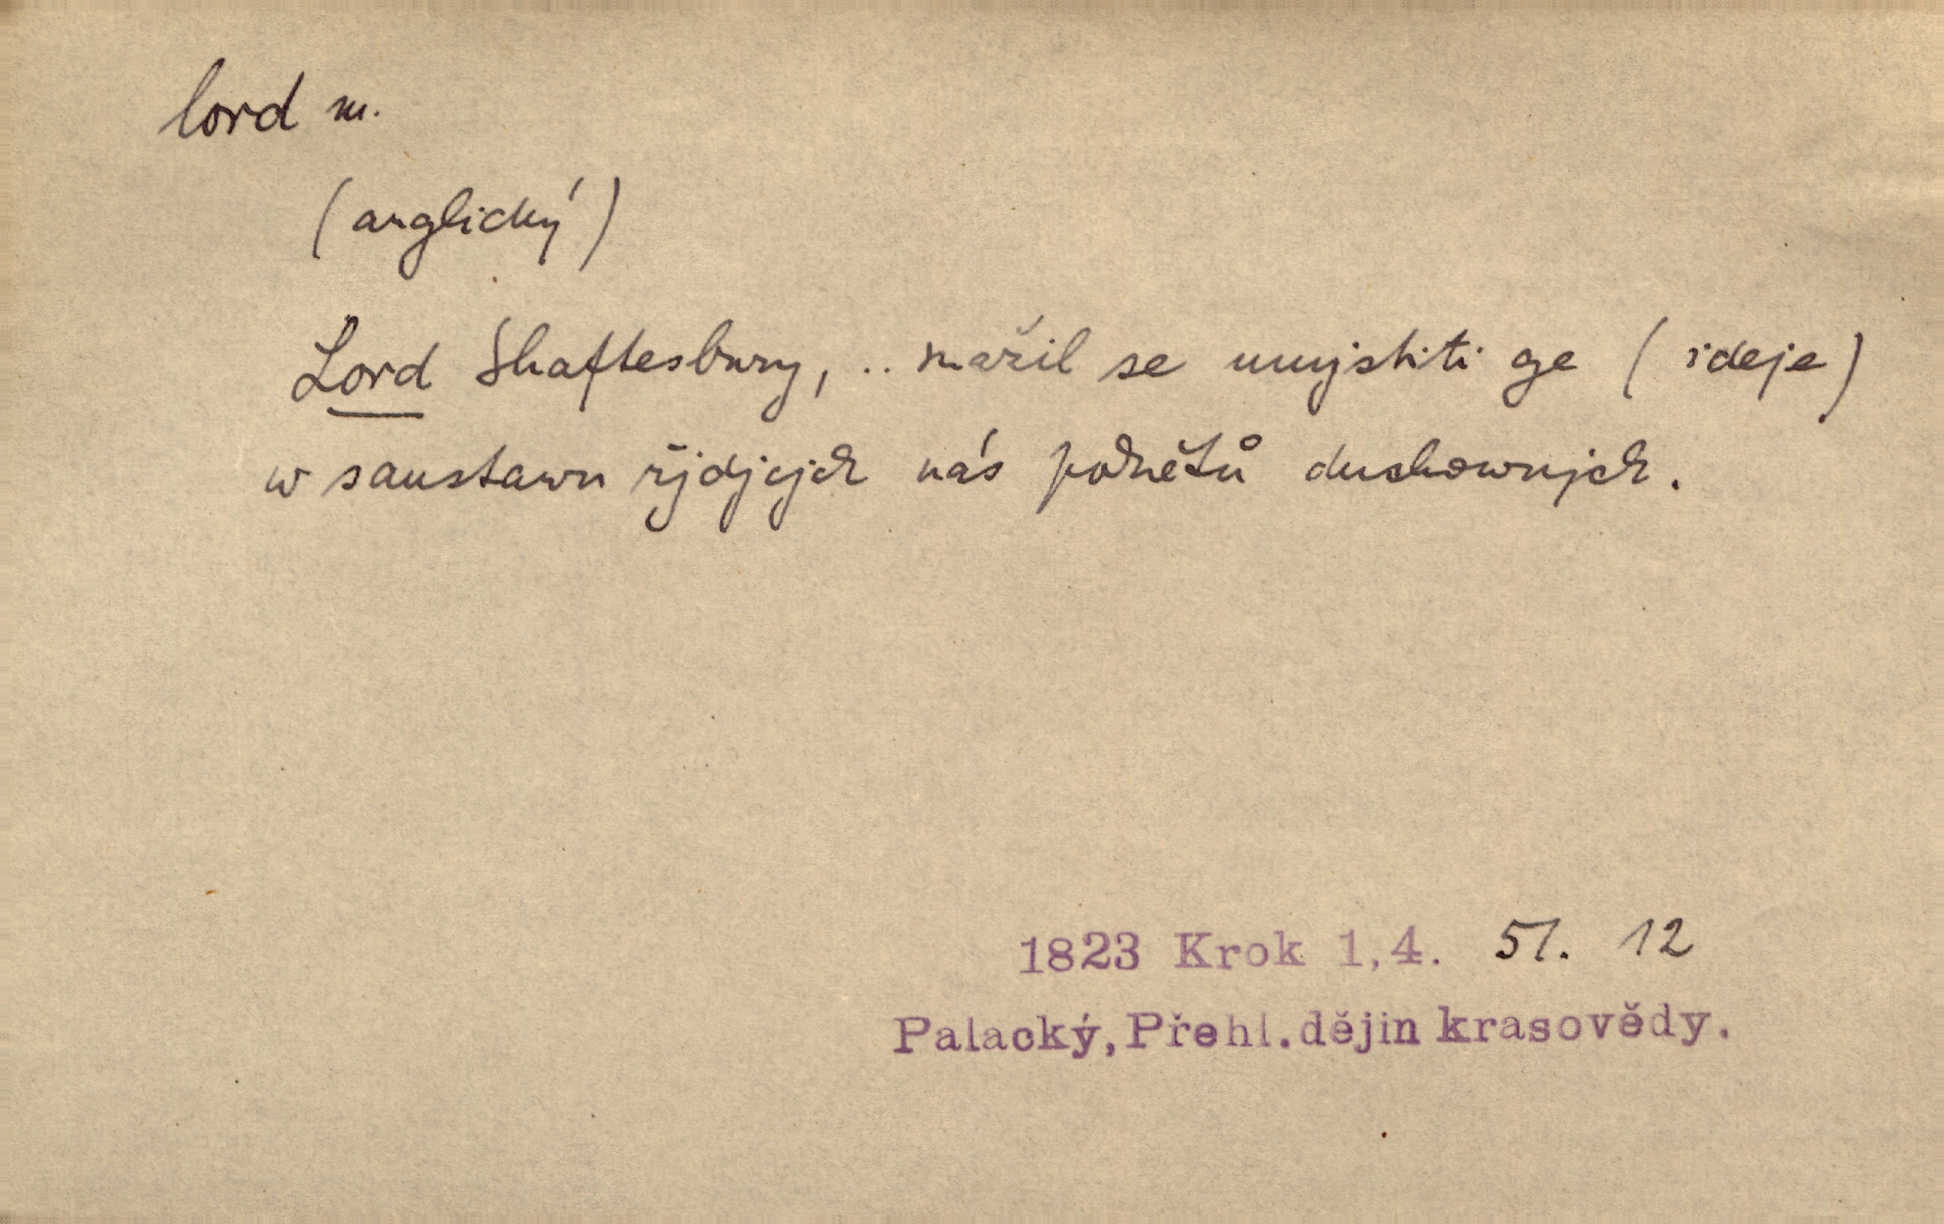 lord m.
(anglický)
Lord Shaftesbury, .. mařil se umjstiti ge (ideje)
w saustawu řjdjcjch nás podnětů duchownjch.
1823 Krok 1,4. 51. 12
Palacký, Přehl. dějin krasovědy.